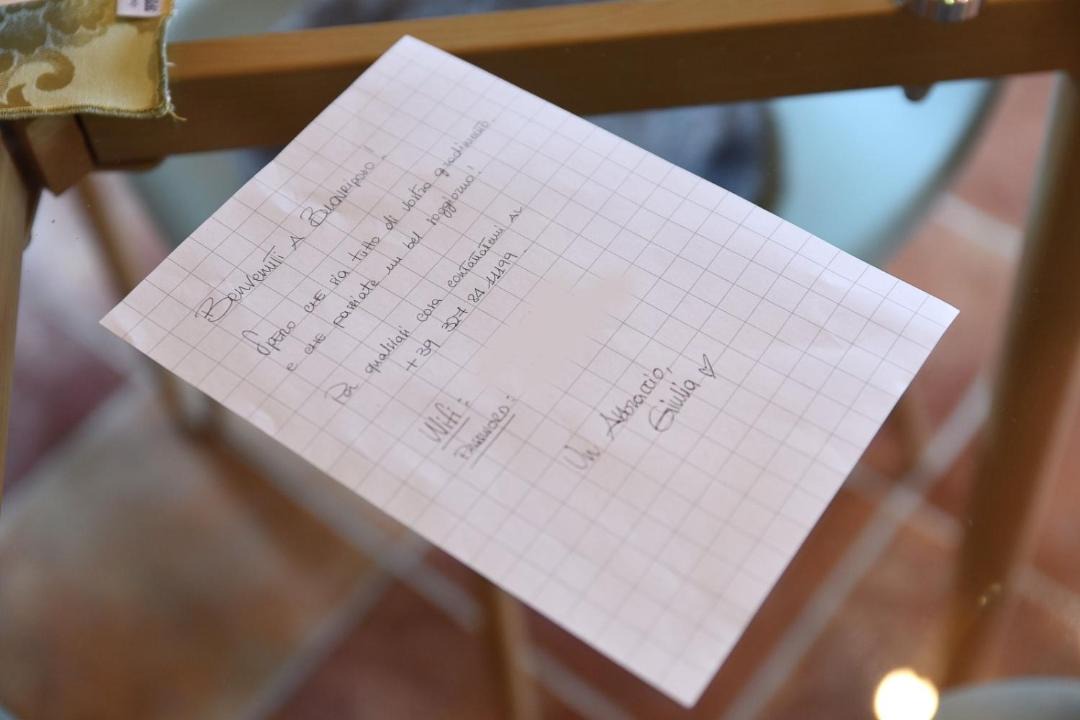 Benvenuti A Buonriposo!
Spero che sia tutto di vostro gradimento
e che passiate un bel soggiorno!
Per qualsiasi cosa contattatemi al
+39 327 84 11199
Wifi:
Password:
Un Abbraccio,
Giulia